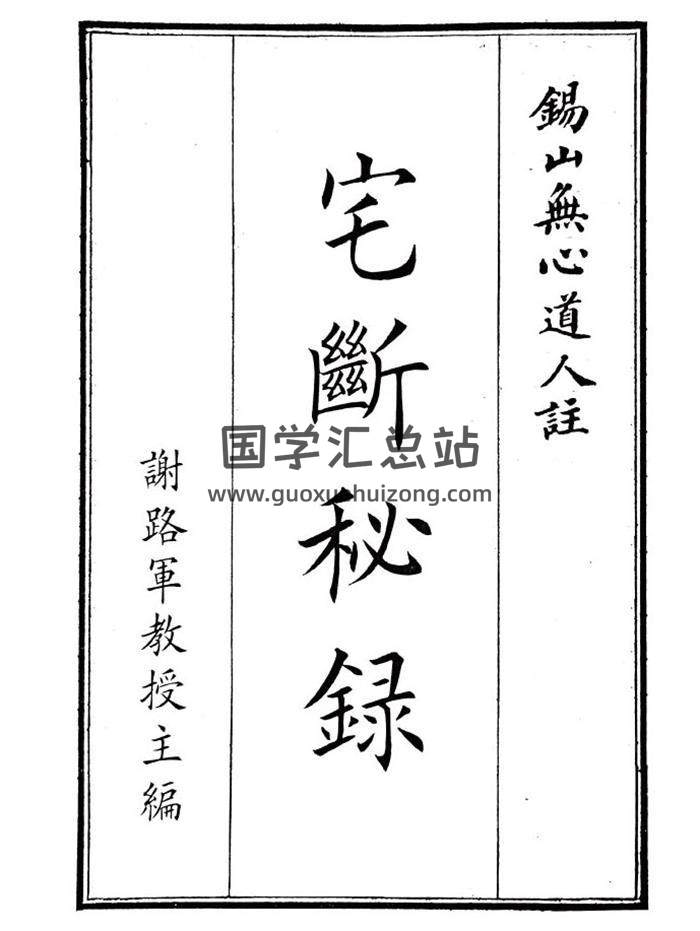 錫山無心道人註
宅斷秘録
謝路軍教授主編
国学汇总站
www.guoxuehuizong.com